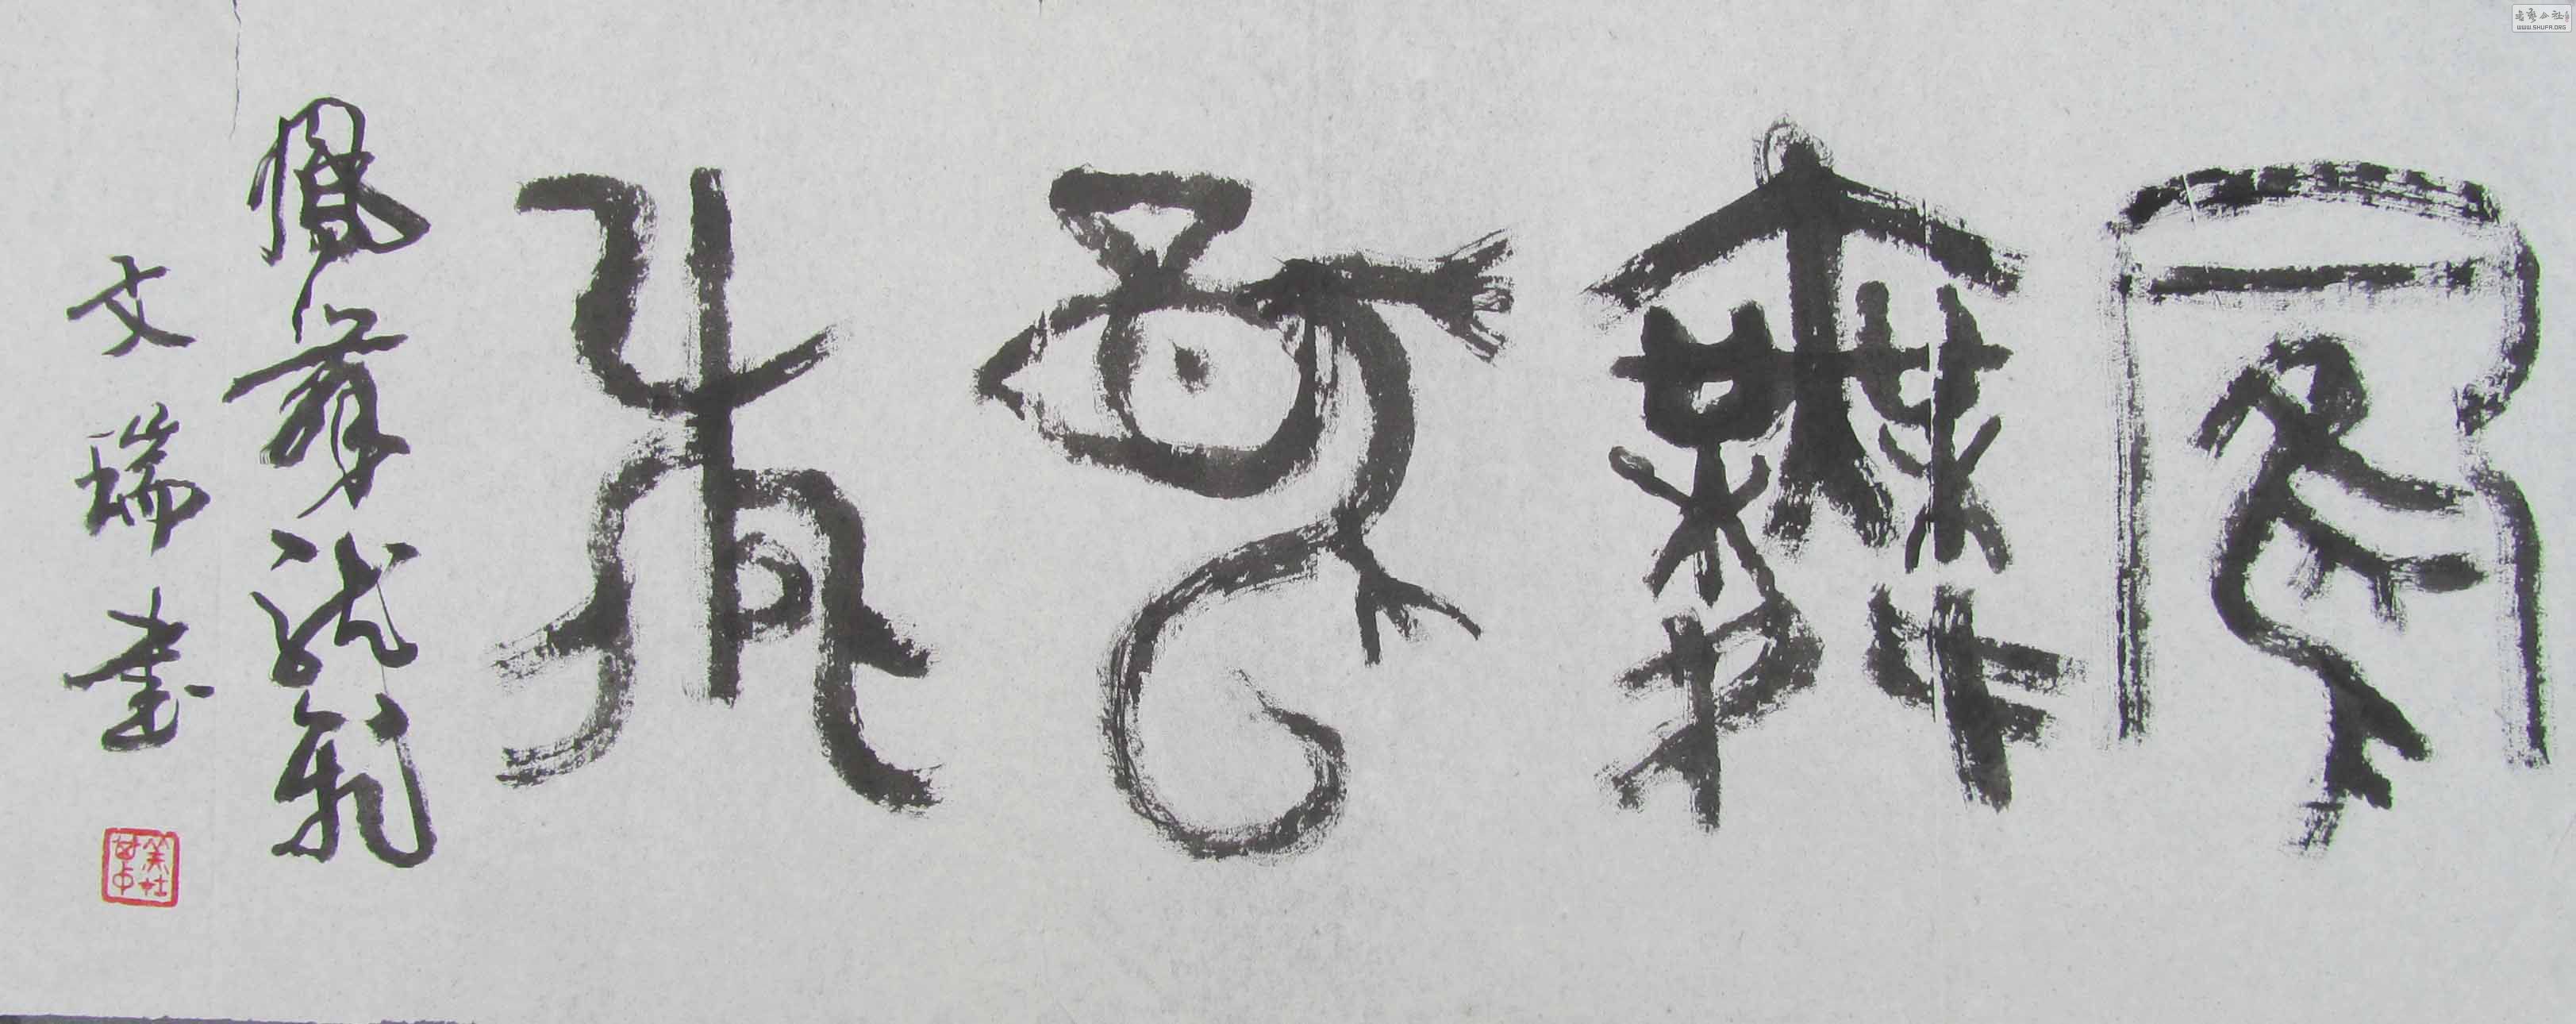 鳳舞龍飛
鳳舞龍飛
文瑞書
WWW.SHUFA.ORG